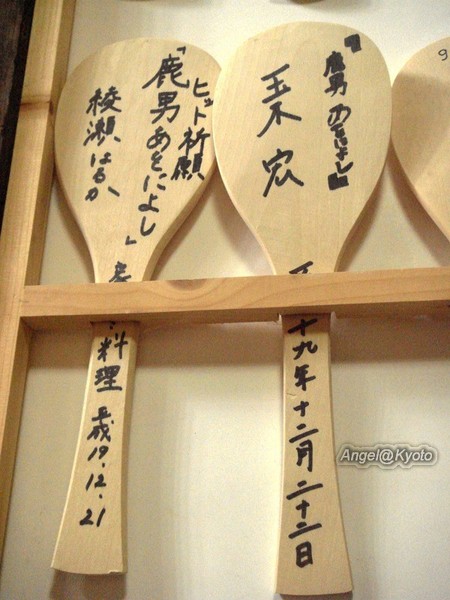 ヒット祈願
「鹿男あをによし」
綾瀬はるか
料理 平成19.12.21
『鹿男あをによし』
玉木宏
十九年十二月二十二日
Angel@Kyoto